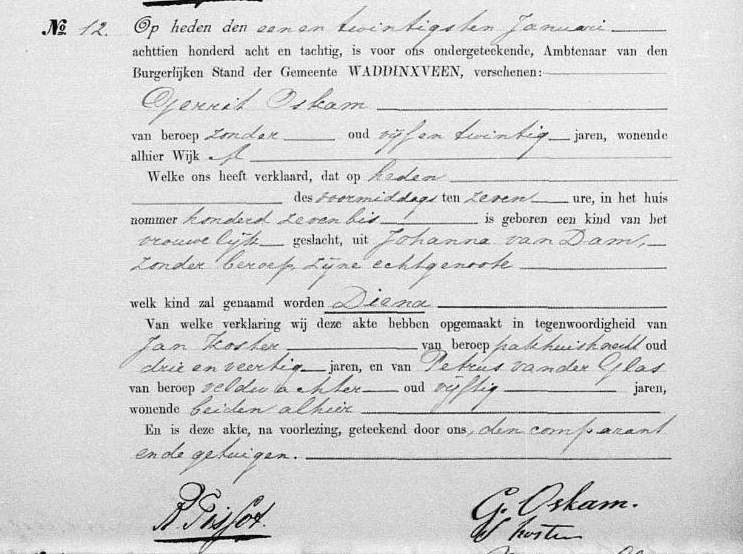 № 12. Op heden den eenen twintigsten Januari
achttien honderd acht en tachtig, is voor ons ondergeteekende, Ambtenaar van den
Burgerlijken Stand der Gemeente WADDINXVEEN, verschenen:
Gerrit Oskam
van beroep zonder oud vijf en twintig jaren, wonende
alhier Wijk A
Welke ons heeft verklaard, dat op heden
des voormiddags ten zeven ure, in het huis
nommer honderd zeven bis is geboren een kind van het
vrouwelijk geslacht, uit Johanna van Dam,
zonder beroep zijne echtgenoote
welk kind zal genaamd worden Diena
Van welke verklaring wij deze akte hebben opgemaakt in tegenwoordigheid van
Jan Koster van beroep pakhuisknecht oud
drie en veertig jaren, en van Petrus van der Glas
van beroep veldwachter oud vijftig jaren,
wonende beiden alhier
En is deze akte, na voorlezing, geteekend door ons, den comparant
en de getuigen.
G. Oskam.
J Koster